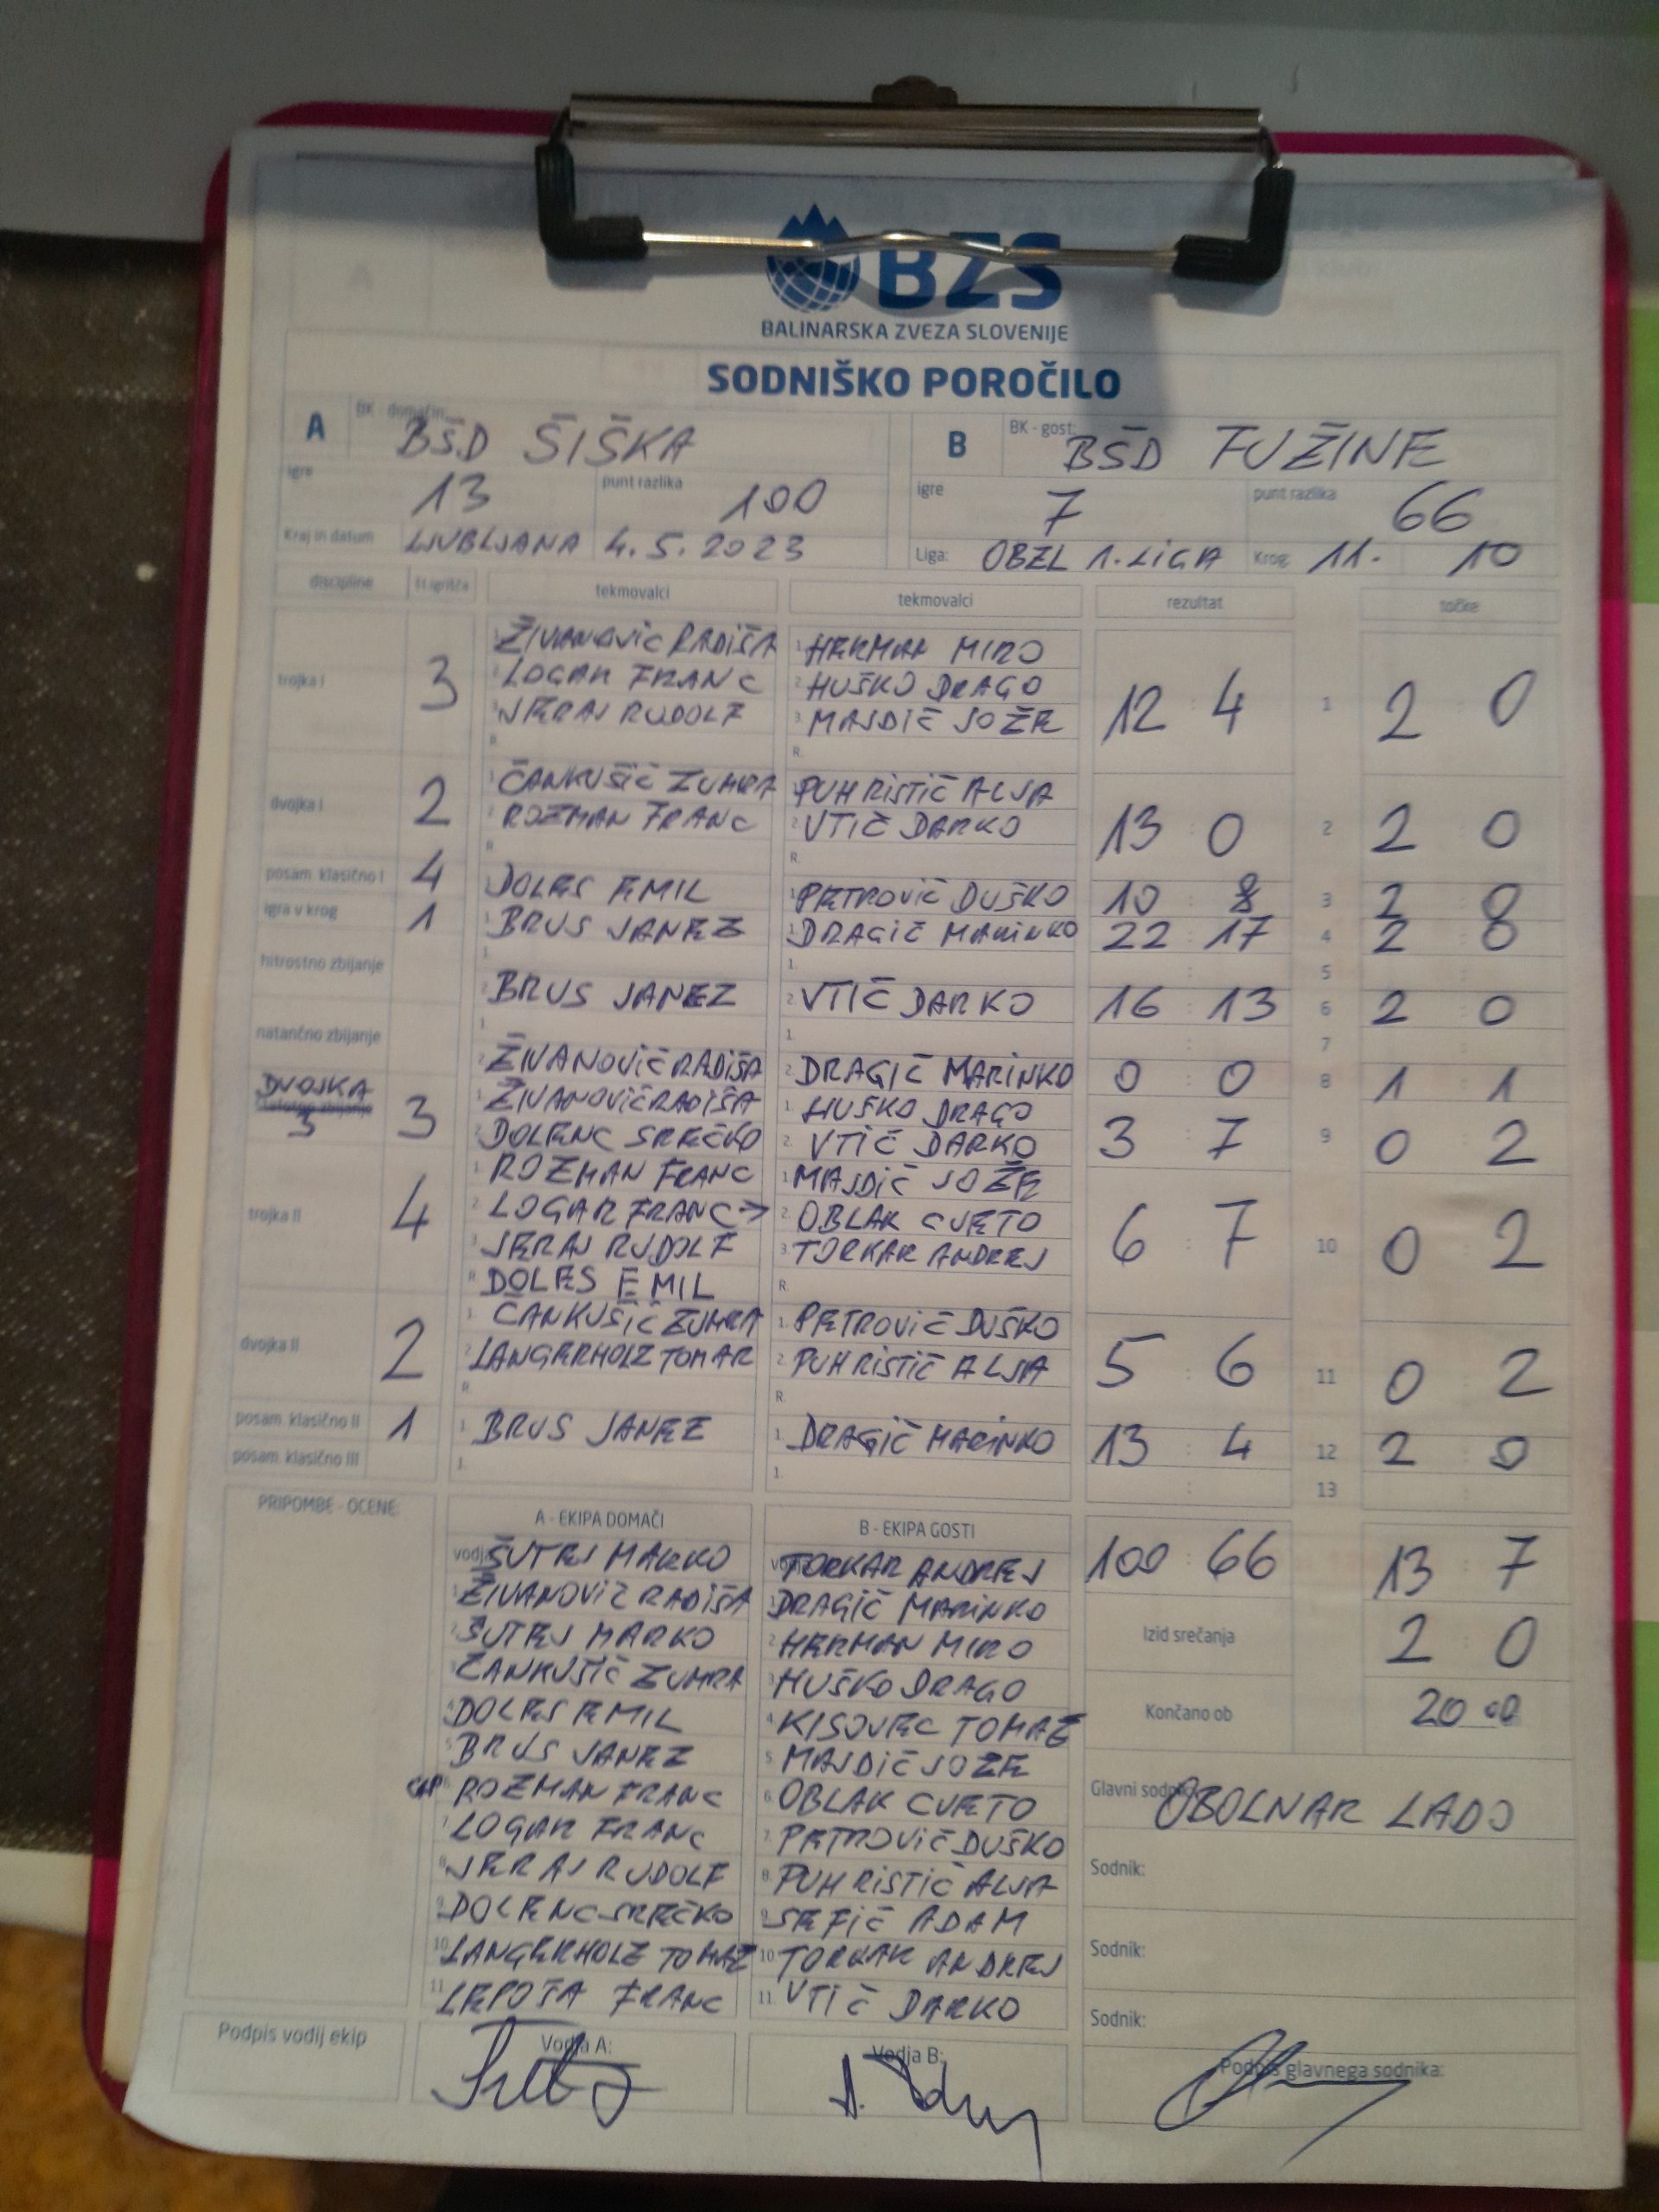 BZS
BALINARSKA ZVEZA SLOVENIJE
SODNIŠKO POROČILO
A BK - domačin: BŠD ŠIŠKA B BK - gost: BŠD FUŽINE
igre 13 punt razlika 100 igre 7 punt razlika 66
Kraj in datum LJUBLJANA 4.5.2023 Liga: OBZL 1. LIGA Krog: 11. 10
discipline št. igrišča tekmovalci tekmovalci rezultat točke
1. ŽIVANOVIČ RADIŠA 1. HERMAN MIRO
trojka I 3 2. LOGAR FRANC 2. HUŠKO DRAGO 12 : 4 1 2 : 0
3. JERAJ RUDOLF 3. MAJDIČ JOŽE
R. R.
1. ČANKUŠIČ ZUMRA PUH RISTIČ ALJA
dvojka I 2 ROZMAN FRANC 2. VTIČ DARKO 13 : 0 2 2 : 0
R. R.
posam. klasično I 4 DOLES EMIL 1. PETROVIČ DUŠKO 10 : 8 3 2 : 0
igra v krog 1 1. BRUS JANEZ 1. DRAGIČ MARINKO 22 : 17 4 2 : 0
hitrostno zbijanje 1. 1. : 5 :
2. BRUS JANEZ 2. VTIČ DARKO 16 : 13 6 2 : 0
natančno zbijanje 1. 1. : 7 :
2. ŽIVANOVIČ RADIŠA 2. DRAGIČ MARINKO 0 : 0 8 1 : 1
DVOJKA 1. ŽIVANOVIČ RADIŠA 1. HUŠKO DRAGO
3 3 2. DOLENC SREČKO 2. VTIČ DARKO 3 : 7 9 0 : 2
1. ROZMAN FRANC 1. MAJDIČ JOŽE
trojka II 4 2. LOGAR FRANC → 2. OBLAK CVETO 6 : 7 10 0 : 2
3. JERAJ RUDOLF 3. TORKAR ANDREJ
R. DOLES EMIL R.
1. ČANKUŠIČ ZUMRA 1. PETROVIČ DUŠKO
dvojka II 2 2. LANGERHOLZ TOMAŽ 2. PUH RISTIČ ALJA 5 : 6 11 0 : 2
R. R.
posam. klasično II 1 1. BRUS JANEZ 1. DRAGIČ MARINKO 13 : 4 12 2 : 0
posam. klasično III 1. 1. : 13 :
PRIPOMBE - OCENE: A - EKIPA DOMAČI B - EKIPA GOSTI
vodja ŠUTEJ MARKO TORKAR ANDREJ 100 : 66 13 : 7
1. ŽIVANOVIČ RADIŠA 1. DRAGIČ MARINKO
2. ŠUTEJ MARKO 2. HERMAN MIRO Izid srečanja 2 0
3. ČANKUŠIČ ZUMRA 3. HUŠKO DRAGO
4. DOLES EMIL 4. KISOVEC TOMAŽ Končano ob 20 00
5. BRUS JANEZ 5. MAJDIČ JOŽE
CAP 6. ROZMAN FRANC 6. OBLAK CVETO Glavni sodnik: OBOLNAR LADO
7. LOGAR FRANC 7. PETROVIČ DUŠKO
8. JERAJ RUDOLF 8. PUH RISTIČ ALJA Sodnik:
9. DOLENC SREČKO 9. SEFIČ ADAM
10. LANGERHOLZ TOMAŽ 10. TORKAR ANDREJ Sodnik:
11. LEPOŠA FRANC 11. VTIČ DARKO
Sodnik:
Podpis vodij ekip Vodja A: Vodja B: Podpis glavnega sodnika: